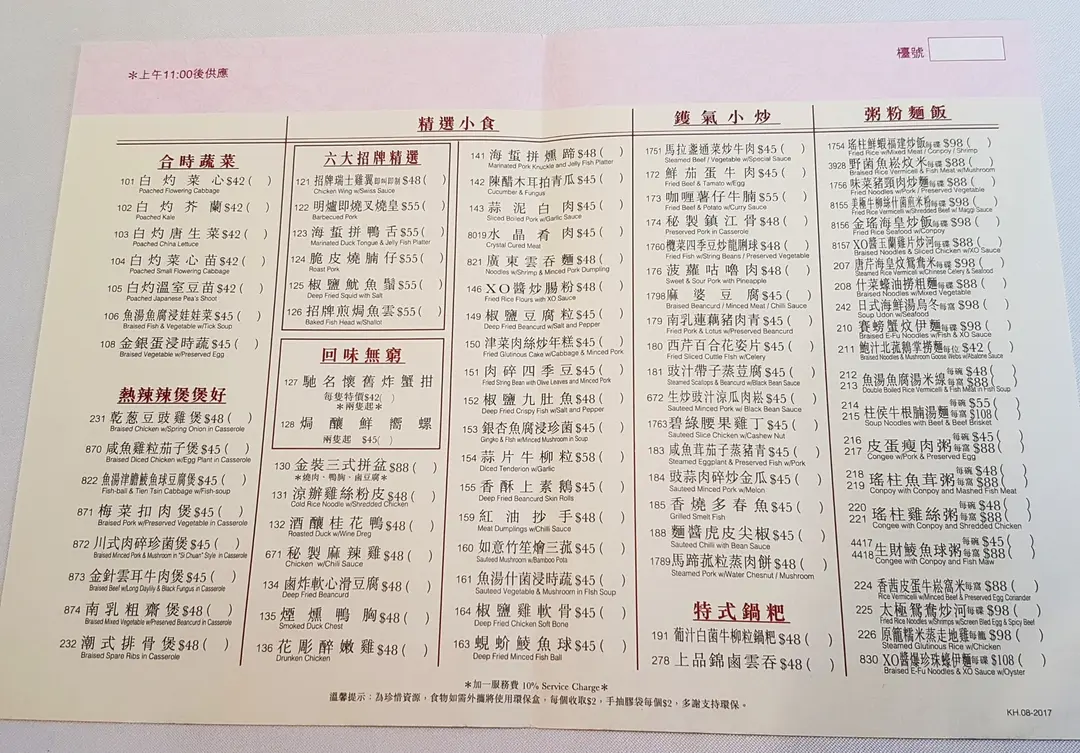 檯號
＊上午11:00後供應
合時蔬菜
101 白灼菜心 $42( )
Poached Flowering Cabbage
102 白灼芥蘭 $42( )
Poached Kale
103 白灼唐生菜 $42( )
Poached China Lettuce
104 白灼菜心苗 $42( )
Poached Small Flowering Cabbage
105 白灼溫室豆苗 $42( )
Poached Japanese Pea's Shoot
106 魚湯魚腐浸娃娃菜 $45( )
Braised Fish & Vegetable w/Tick Soup
108 金銀蛋浸時蔬 $45( )
Braised Vegetable w/Preserved Egg
熱辣辣煲煲好
231 乾葱豆豉雞煲 $48( )
Braised Chicken w/Spring Onion in Casserole
870 咸魚雞粒茄子煲 $45( )
Braised Diced Chicken w/Egg Plant in Casserole
822 魚湯津膽鯪魚球豆腐煲 $45( )
Fish-ball & Tien Tsin Cabbage w/Fish-soup
871 梅菜扣肉煲 $45( )
Braised Pork w/Preserved Vegetable in Casserole
872 川式肉碎珍菌煲 $45( )
Braised Minced Pork & Mushroom in "Si Chuan" Style in Casserole
873 金針雲耳牛肉煲 $45( )
Braised Beef w/Long Daylily & Black Fungus in Casserole
874 南乳粗齋煲 $48( )
Braised Mixed Vegetable w/Preserved Beancurd in Casserole
232 潮式排骨煲 $48( )
Braised Spare Ribs in Casserole
精選小食
六大招牌精選
121 招牌瑞士雞翼 即叫即制 $48( )
Chicken Wing w/Swiss Sauce
122 明爐即燒叉燒皇 $55( )
Barbecued Pork
123 海蜇拼鴨舌 $55( )
Marinated Duck Tongue & Jelly Fish Platter
124 脆皮燒腩仔 $55( )
Roast Pork
125 椒鹽魷魚鬚 $55( )
Deep Fried Squid with Salt
126 招牌煎焗魚雲 $55( )
Baked Fish Head w/Shallot
回味無窮
127 馳名懷舊炸蟹拑
每隻特價$42( )
＊兩隻起＊
128 焗釀鮮嚮螺
兩隻起 $45( )
130 金裝三式拼盆 $88( )
＊燒肉、鴨胸、鹵豆腐＊
131 涼辦雞絲粉皮 $48( )
Cold Rice Noodle w/Shredded Chicken
132 酒釀桂花鴨 $48( )
Roasted Duck w/Wine Dreg
671 秘製麻辣雞 $48( )
134 鹵炸軟心滑豆腐 $48( )
Deep Fried Beancurd
135 煙燻鴨胸 $48( )
Smoked Duck Chest
136 花彫醉嫩雞 $48( )
Drunken Chicken
141 海蜇拼燻蹄 $48( )
Marinated Pork Knuckle and Jelly Fish Platter
142 陳醋木耳拍青瓜 $45( )
Cucumber & Fungus
143 蒜泥白肉 $45( )
Sliced Boiled Pork w/Garlic Sauce
8019 水晶肴肉 $45( )
Crystal Cured Meat
821 廣東雲吞麵 $48( )
Noodles w/Shrimp & Minced Pork Dumpling
146 XO醬炒腸粉 $48( )
Fried Rice Flours with XO Sauce
149 椒鹽豆腐粒 $45( )
Deep Fried Beancurd w/Salt and Pepper
150 津菜肉絲炒年糕 $45( )
Fried Glutinous Cake w/Cabbage & Minced Pork
151 肉碎四季豆 $45( )
Fried String Bean with Olive Leaves and Minced Pork
152 椒鹽九肚魚 $48( )
Deep Fried Crispy Fish w/Salt and Pepper
153 銀杏魚腐浸珍菌 $45( )
Gingko & Fish w/Minced Mushroom in Soup
154 蒜片牛柳粒 $58( )
Diced Tenderion w/Garlic
155 香酥上素鵝 $45( )
Deep Fried Beancurd Skin Rolls
159 紅油抄手 $48( )
Meat Dumplings w/Chilli Sauce
160 如意竹笙燴三菰 $45( )
Sauteed Mushroom w/Bamboo Pota
161 魚湯什菌浸時蔬 $45( )
Sauteed Vegetable & Mushroom in Fish Soup
164 椒鹽雞軟骨 $45( )
Deep Fried Chicken Soft Bone
163 蜆蚧鯪魚球 $45( )
Deep Fried Minced Fish Ball
鑊氣小炒
1751 馬拉盞通菜炒牛肉 $45( )
Steamed Beef / Vegetable w/Special Sauce
172 鮮茄蛋牛肉 $45( )
Fried Beef & Tomato w/Egg
173 咖喱薯仔牛腩 $55( )
Fried Beef & Potato w/Curry Sauce
174 秘製鎮江骨 $48( )
Preserved Pork in Casserole
1760 欖菜四季豆炒龍脷球 $48( )
Fried Fish w/String Beans / Preserved Vegetable
176 菠蘿咕嚕肉 $48( )
Sweet & Sour Pork with Pineapple
1798 麻婆豆腐 $45( )
Braised Beancurd / Minced Meat / Chilli Sauce
179 南乳蓮藕豬肉青 $45( )
Fried Pork & Lotus w/Preserved Beancurd
180 西芹百合花姿片 $45( )
Fried Sliced Cuttle Fish w/Celery
181 豉汁帶子蒸荳腐 $45( )
Steamed Scallops & Beancurd w/Black Bean Sauce
672 生炒豉汁涼瓜肉崧 $45( )
Sauteed Minced Pork w/ Black Bean Sauce
1763 碧綠腰果雞丁 $45( )
Sauteed Slice Chicken w/Cashew Nut
183 咸魚茸茄子蒸豬青 $45( )
Steamed Eggplant & Preserved Fish w/Pork
184 豉蒜肉碎炒金瓜 $45( )
Sauteed Minced Pork w/Melon
185 香燒多春魚 $45( )
Grilled Smelt Fish
188 麵醬虎皮尖椒 $45( )
Sauteed Chilli with Bean Sauce
1789 馬蹄菰粒蒸肉餅 $48( )
Steamed Pork w/Water Chesnut / Mushroom
特式鍋粑
191 葡汁白菌牛柳粒鍋粑 $48( )
278 上品錦鹵雲吞 $48( )
粥粉麵飯
1754 瑤柱鮮蝦福建炒飯 每碟 $98( )
Fried Rice w/Mixed Meat / Conpoy / Shrimp
3928 野菌魚崧炆米 每碟 $88( )
Braised Rice Vermicelli w/Fish Meat w/Mushroom
1756 味菜豬頸肉炒麵 每碟 $88( )
Fried Noodles w/Pork / Preserved Vegetable
8155 美極牛柳絲什菌煎米粉 每碟 $98( )
Fried Rice Vermicelli w/Shredded Beef w/ Maggi Sauce
8156 金瑤海皇炒飯 每碟 $98( )
Fried Rice Seafood w/Conpoy
8157 XO醬玉蘭雞片炒河 每碟 $88( )
Braised Noodles & Sliced Chicken w/XO Sauce
207 唐芹海皇炆鴛鴦米 每碟 $98( )
Steamed Rice Vermiceli w/Chinese Celery & Seafood
208 什菜蠔油撈粗麵 每碟 $88( )
Braised Noodles w/Mixed Vegetable
242 日式海鮮湯烏冬 每窩 $98( )
Soup Udon w/Seafood
210 賽螃蟹炆伊麵 每碟 $98( )
Braised E-Fu Noodles w/Fish & XO Sauce
211 鮑汁北菰鵝掌撈麵 每位 $42( )
Braised Noodles & Mushroom Goose Webs w/Abalone Sauce
212 213 魚湯魚腐湯米線 每碗 $48( ) 每窩 $88( )
Double Boiled Rice Vermicelli & Fish Meat in Fish Soup
214 215 柱侯牛根腩湯麵 每碗 $55( ) 每窩 $108( )
Soup Noodles with Beef & Beef Brisket
216 217 皮蛋瘦肉粥 每碗 $45( ) 每窩 $88( )
Congee w/Pork & Preserved Egg
218 219 瑤柱魚茸粥 每碗 $48( ) 每窩 $88( )
Conpoy with Conpoy and Mashed Fish Meat
220 221 瑤柱雞絲粥 每碗 $48( ) 每窩 $88( )
Congee with Conpoy and Shredded Chicken
4417 4418 生財鯪魚球粥 每碗 $45( ) 每窩 $88( )
Congee with Fish Ball & Fish Maw
224 香茜皮蛋牛崧窩米 每窩 $88( )
Rice Vermicelli w/Minced Beef & Preserved Egg Coriander
225 太極鴛鴦炒河 每碟 $98( )
Fried Rice Noodles w/Shrimps w/Screen Bled Egg & Spicy Beef
226 原籠糯米蒸走地雞 每籠 $98( )
Steamed Glutinous Rice w/Chicken
830 XO醬爆珍珠蠔伊麵 每碟 $108( )
Braised E-Fu Noodles & XO Sauce w/Oyster
＊加一服務費 10% Service Charge＊
溫馨提示：為珍惜資源，食物如需外攜將使用環保盒，每個收取$2，手抽膠袋每個$2，多謝支持環保。
KH.08-2017